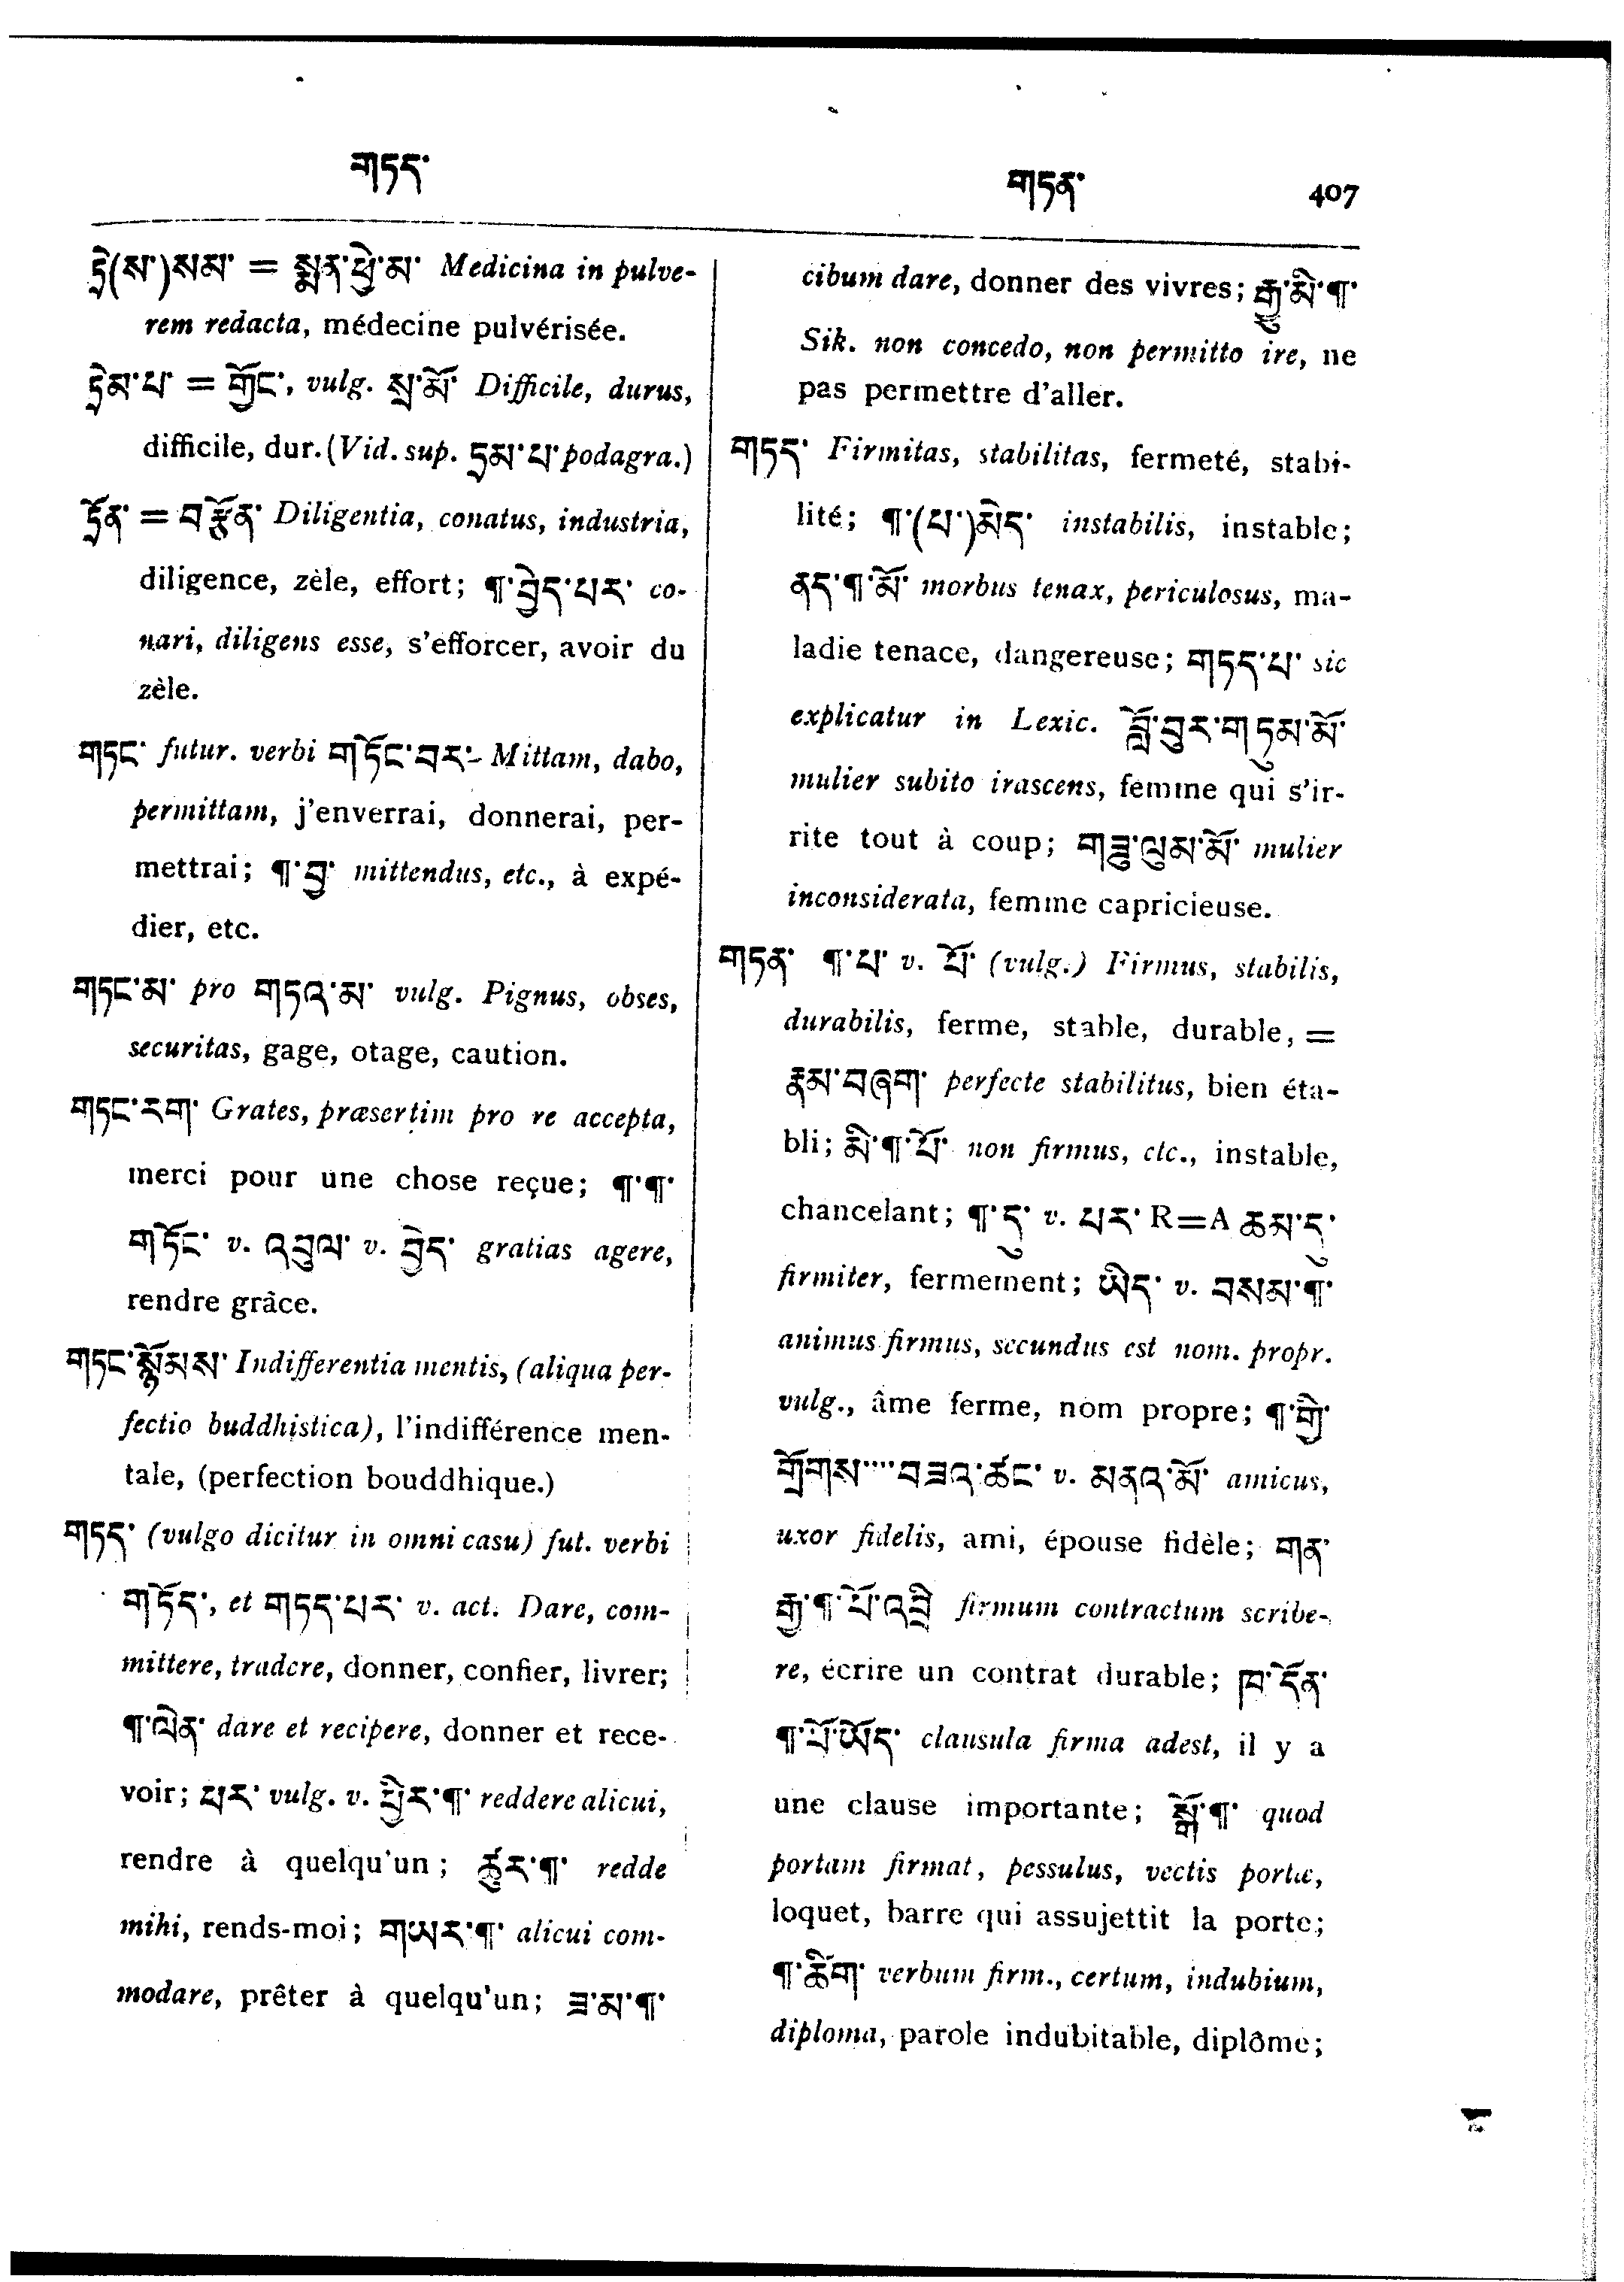 གཏད་
གཏན་ 407
ཏྲེ(ས་)སམ་ = སྨན་ཕྱེ་མ་ Medicina in pulve-
rem redacta, médecine pulvérisée.
ཏྲེམ་པ་ = གྱོང་, vulg. སྲ་མོ་ Difficile, durus,
difficile, dur. (Vid. sup. ཏྲམ་པ་ podagra.)
ཏྲོན་ = བརྩོན་ Diligentia, conatus, industria,
diligence, zèle, effort; ¶་བྱེད་པར་ co-
nari, diligens esse, s'efforcer, avoir du
zèle.
གཏང་ futur. verbi གཏོང་བར་ Mittam, dabo,
permittam, j'enverrai, donnerai, per-
mettrai; ¶་བྱ་ mittendus, etc., à expé-
dier, etc.
གཏང་མ་ pro གཏའ་མ་ vulg. Pignus, obses,
securitas, gage, otage, caution.
གཏང་རག་ Grates, præsertim pro re accepta,
merci pour une chose reçue; ¶་¶་
གཏོང་ v. འབུལ་ v. བྱེད་ gratias agere,
rendre grâce.
གཏང་སྙོམས་ Indifferentia mentis, (aliqua per-
fectio buddhistica), l'indifférence men-
tale, (perfection bouddhique.)
གཏད་ (vulgo dicitur in omni casu) fut. verbi
གཏོད་, et གཏད་པར་ v. act. Dare, com-
mittere, tradere, donner, confier, livrer;
¶་ལེན་ dare et recipere, donner et rece-
voir; པར་ vulg. v. ཕྱིར་¶་ reddere alicui,
rendre à quelqu'un; ཚུར་¶་ redde
mihi, rends-moi; གཡར་¶་ alicui com-
modare, prêter à quelqu'un; ཟ་མ་¶་
cibum dare, donner des vivres; རྒྱུ་མི་¶་
Sik. non concedo, non permitto ire, ne
pas permettre d'aller.
གཏད་ Firmitas, stabilitas, fermeté, stabi-
lité; ¶་(པ་)མེད་ instabilis, instable;
ནད་¶་མོ་ morbus tenax, periculosus, ma-
ladie tenace, dangereuse; གཏད་པ་ sic
explicatur in Lexic. བློ་བུར་གཏུམ་མོ་
mulier subito irascens, femme qui s'ir-
rite tout à coup; གཟུ་ལུམ་མོ་ mulier
inconsiderata, femme capricieuse.
གཏན་ ¶་པ་ v. པོ་ (vulg.) Firmus, stabilis,
durabilis, ferme, stable, durable, =
རྣམ་བཞག་ perfecte stabilitus, bien éta-
bli; མི་¶་པོ་ non firmus, etc., instable,
chancelant; ¶་དུ་ v. པར་ R=A ཆམ་དུ་
firmiter, fermement; ཡིད་ v. བསམ་¶་
animus firmus, secundus est nom. propr.
vulg., âme ferme, nom propre; ¶་གྱི་
གྲོགས་་་་་བཟའ་ཚང་ v. མནའ་མོ་ amicus,
uxor fidelis, ami, épouse fidèle; གན་
རྒྱ་¶་པོ་འབྲི firmum contractum scribe-
re, écrire un contrat durable; ཁ་དོན་
¶་པོ་ཡོད་ clausula firma adest, il y a
une clause importante; སྒོ་¶་ quod
portam firmat, pessulus, vectis portæ,
loquet, barre qui assujettit la porte;
¶་ཚིག་ verbum firm., certum, indubium,
diploma, parole indubitable, diplôme;